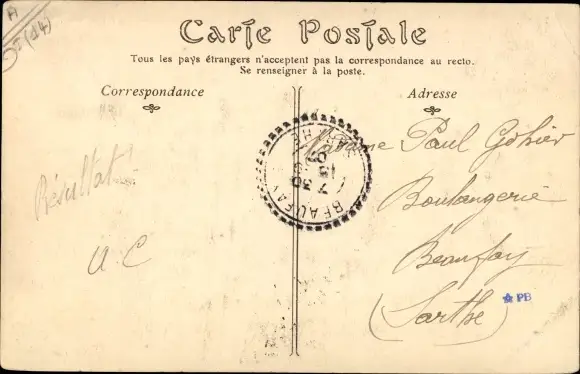 A
(d4)
Carte Postale
Tous les pays étrangers n'acceptent pas la correspondance au recto.
Se renseigner à la poste.
Correspondance
Adresse
Résultat
U. C
BEAUFAY
SARTHE
Madame Paul Gohier
Boulangerie
Beaufay
(Sarthe)
PB